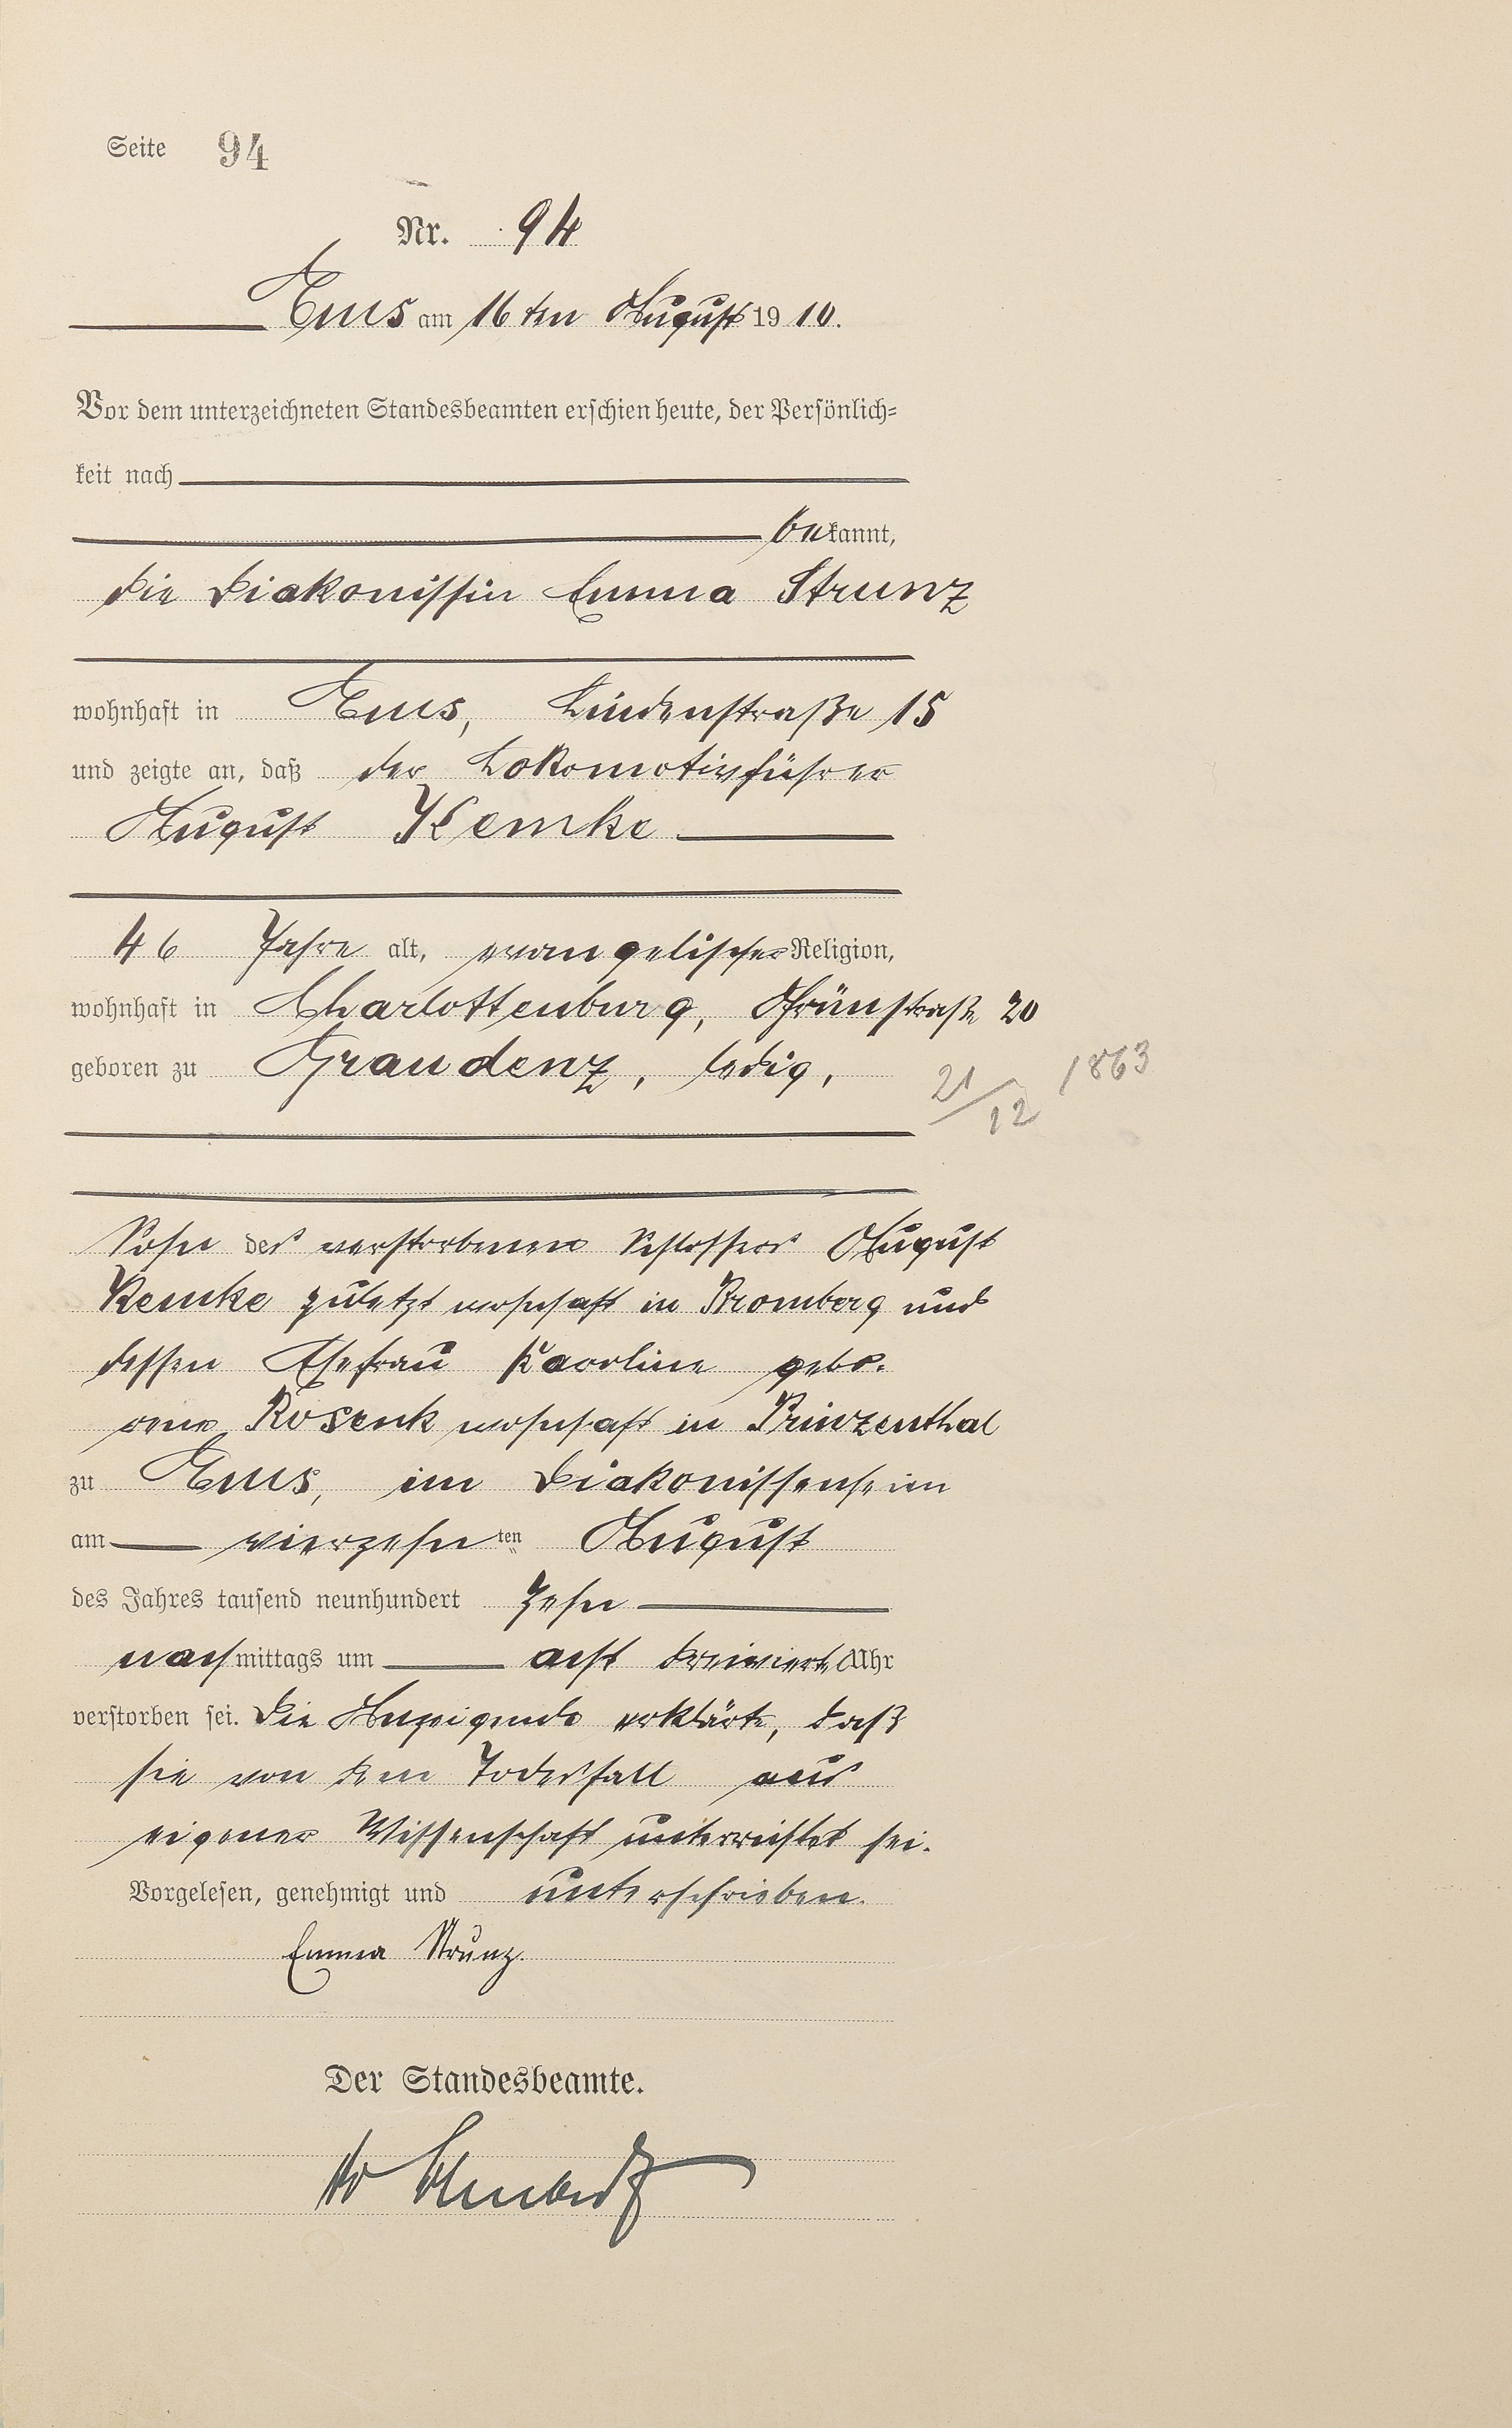 Seite 94
Nr. 94
Ems am 16ten August 1910.
Vor dem unterzeichneten Standesbeamten erschien heute, der Persönlich-
keit nach
bekannt,
die Diakonissin Emma Strunz
wohnhaft in Ems, Lindenstraße 15
und zeigte an, daß der Lokomotivführer
August Remke
46 Jahre alt, evangelischer Religion,
wohnhaft in Charlottenburg, Grünstraße 20
geboren zu Graudenz, ledig,
21/12 1863
Sohn des verstorbenen Schlossers August
Remke zuletzt wohnhaft in Bromberg und
dessen Ehefrau Karoline gebo-
rene Rosenk wohnhaft in Prinzenthal
zu Ems, im Diakonissenheim
am vierzehnten August
des Jahres tausend neunhundert zehn
nachmittags um acht dreiviertel Uhr
verstorben sei. Die Anzeigende erklärte, daß
sie von dem Todesfall aus
eigener Wissenschaft unterrichtet sei.
Vorgelesen, genehmigt und unterschrieben.
Emma Strunz.
Der Standesbeamte.